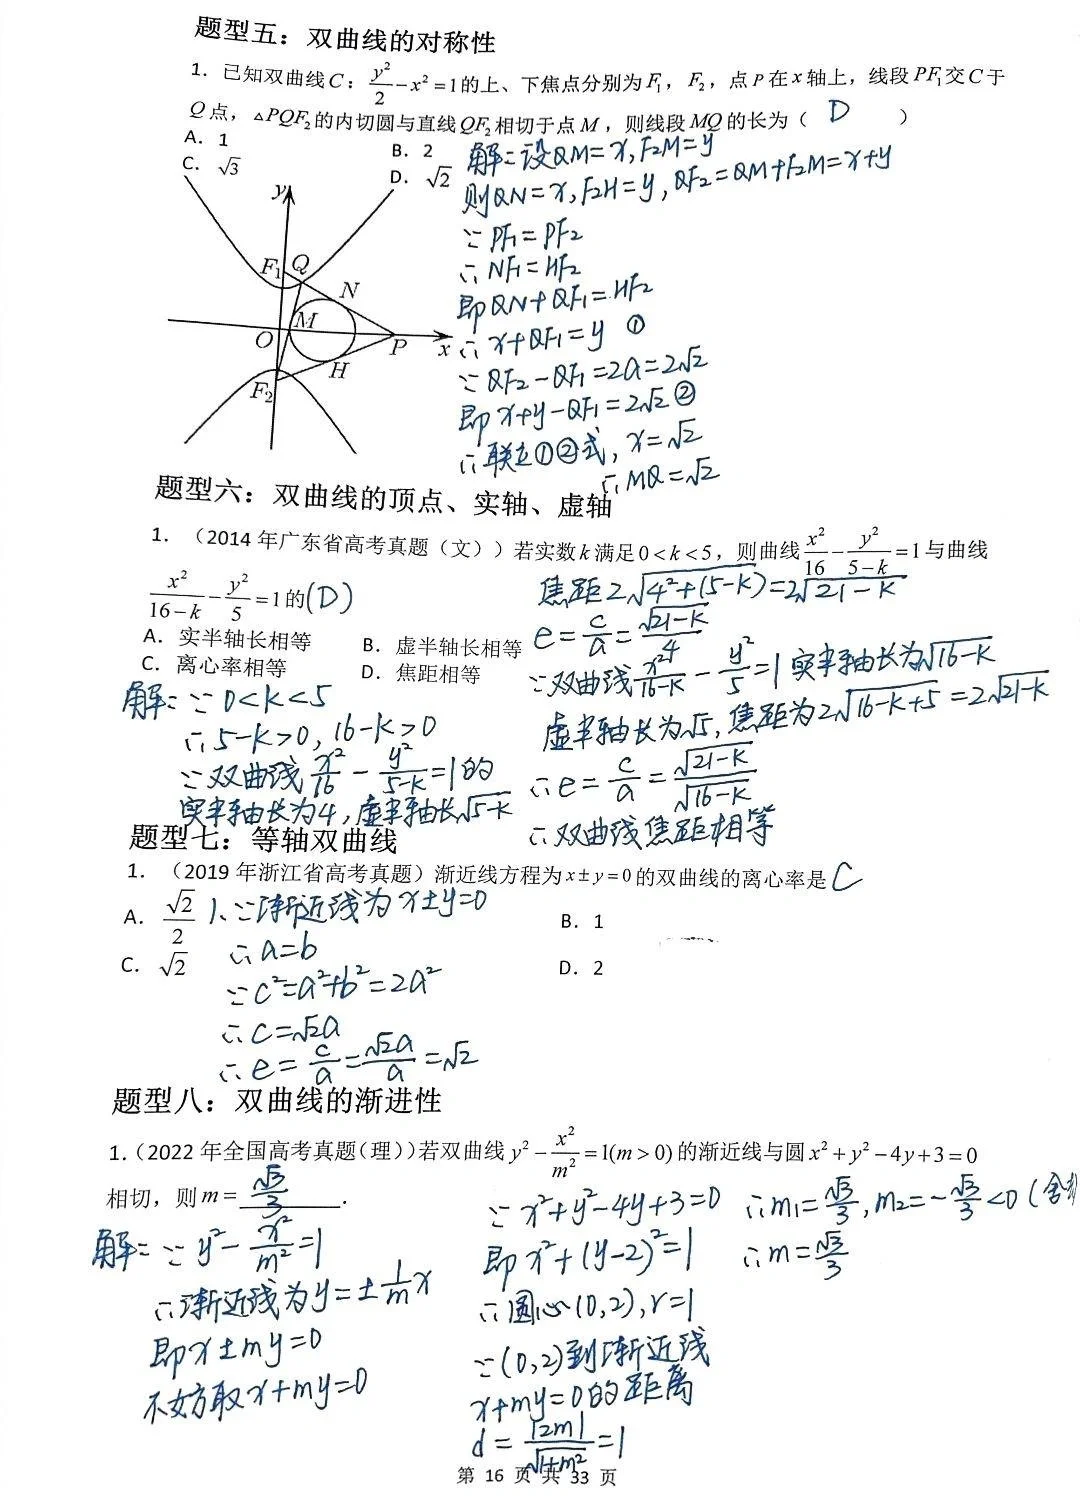 题型五：双曲线的对称性
1．已知双曲线C：y²/2－x²=1的上、下焦点分别为F₁，F₂，点P在x轴上，线段PF₁交C于
Q点，△PQF₂的内切圆与直线QF₂相切于点M，则线段MQ的长为（ D ）
A．1
B．2
C．√3
D．√2
解：设QM=x,F₂M=y
则QN=x,F₂H=y,QF₂=QM+F₂M=x+y
∵PF₁=PF₂
∴NF₁=HF₂
即QN+QF₁=HF₂
∴x+QF₁=y ①
∵QF₂-QF₁=2a=2√2
即x+y-QF₁=2√2 ②
∴联立①②式,x=√2
∴MQ=√2
y
F₁
Q
N
M
O
P
x
H
F₂
题型六：双曲线的顶点、实轴、虚轴
1．（2014年广东省高考真题（文））若实数k满足0<k<5，则曲线x²/16－y²/(5－k)=1与曲线
x²/(16－k)－y²/5=1的(D)
A．实半轴长相等
B．虚半轴长相等
C．离心率相等
D．焦距相等
解:∵0<k<5
∴5-k>0,16-k>0
∵双曲线x²/16-y²/(5-k)=1的
实半轴长为4,虚半轴长√(5-k)
焦距2√(4²+(5-k))=2√(21-k)
e=c/a=√(21-k)/4
∵双曲线x²/(16-k)-y²/5=1实半轴长为√(16-k)
虚半轴长为√5,焦距为2√(16-k+5)=2√(21-k)
∴e=c/a=√(21-k)/√(16-k)
∴双曲线焦距相等
题型七：等轴双曲线
1．（2019年浙江省高考真题）渐近线方程为x±y=0的双曲线的离心率是 C
A．√2/2
B．1
C．√2
D．2
1、∵渐近线为x±y=0
∴a=b
∵c²=a²+b²=2a²
∴c=√2a
∴e=c/a=√2a/a=√2
题型八：双曲线的渐进性
1.（2022年全国高考真题（理））若双曲线y²－x²/m²=1(m>0)的渐近线与圆x²+y²－4y+3=0
相切，则m=√3/3．
解:∵y²-x²/m²=1
∴渐近线为y=±1/m x
即x±my=0
不妨取x+my=0
∵x²+y²-4y+3=0
即x²+(y-2)²=1
∴圆心(0,2),r=1
∵(0,2)到渐近线
x+my=0的距离
d=|2m|/√(1+m²)=1
∴m₁=√3/3,m₂=-√3/3<0(舍
∴m=√3/3
第 16 页 共 33 页